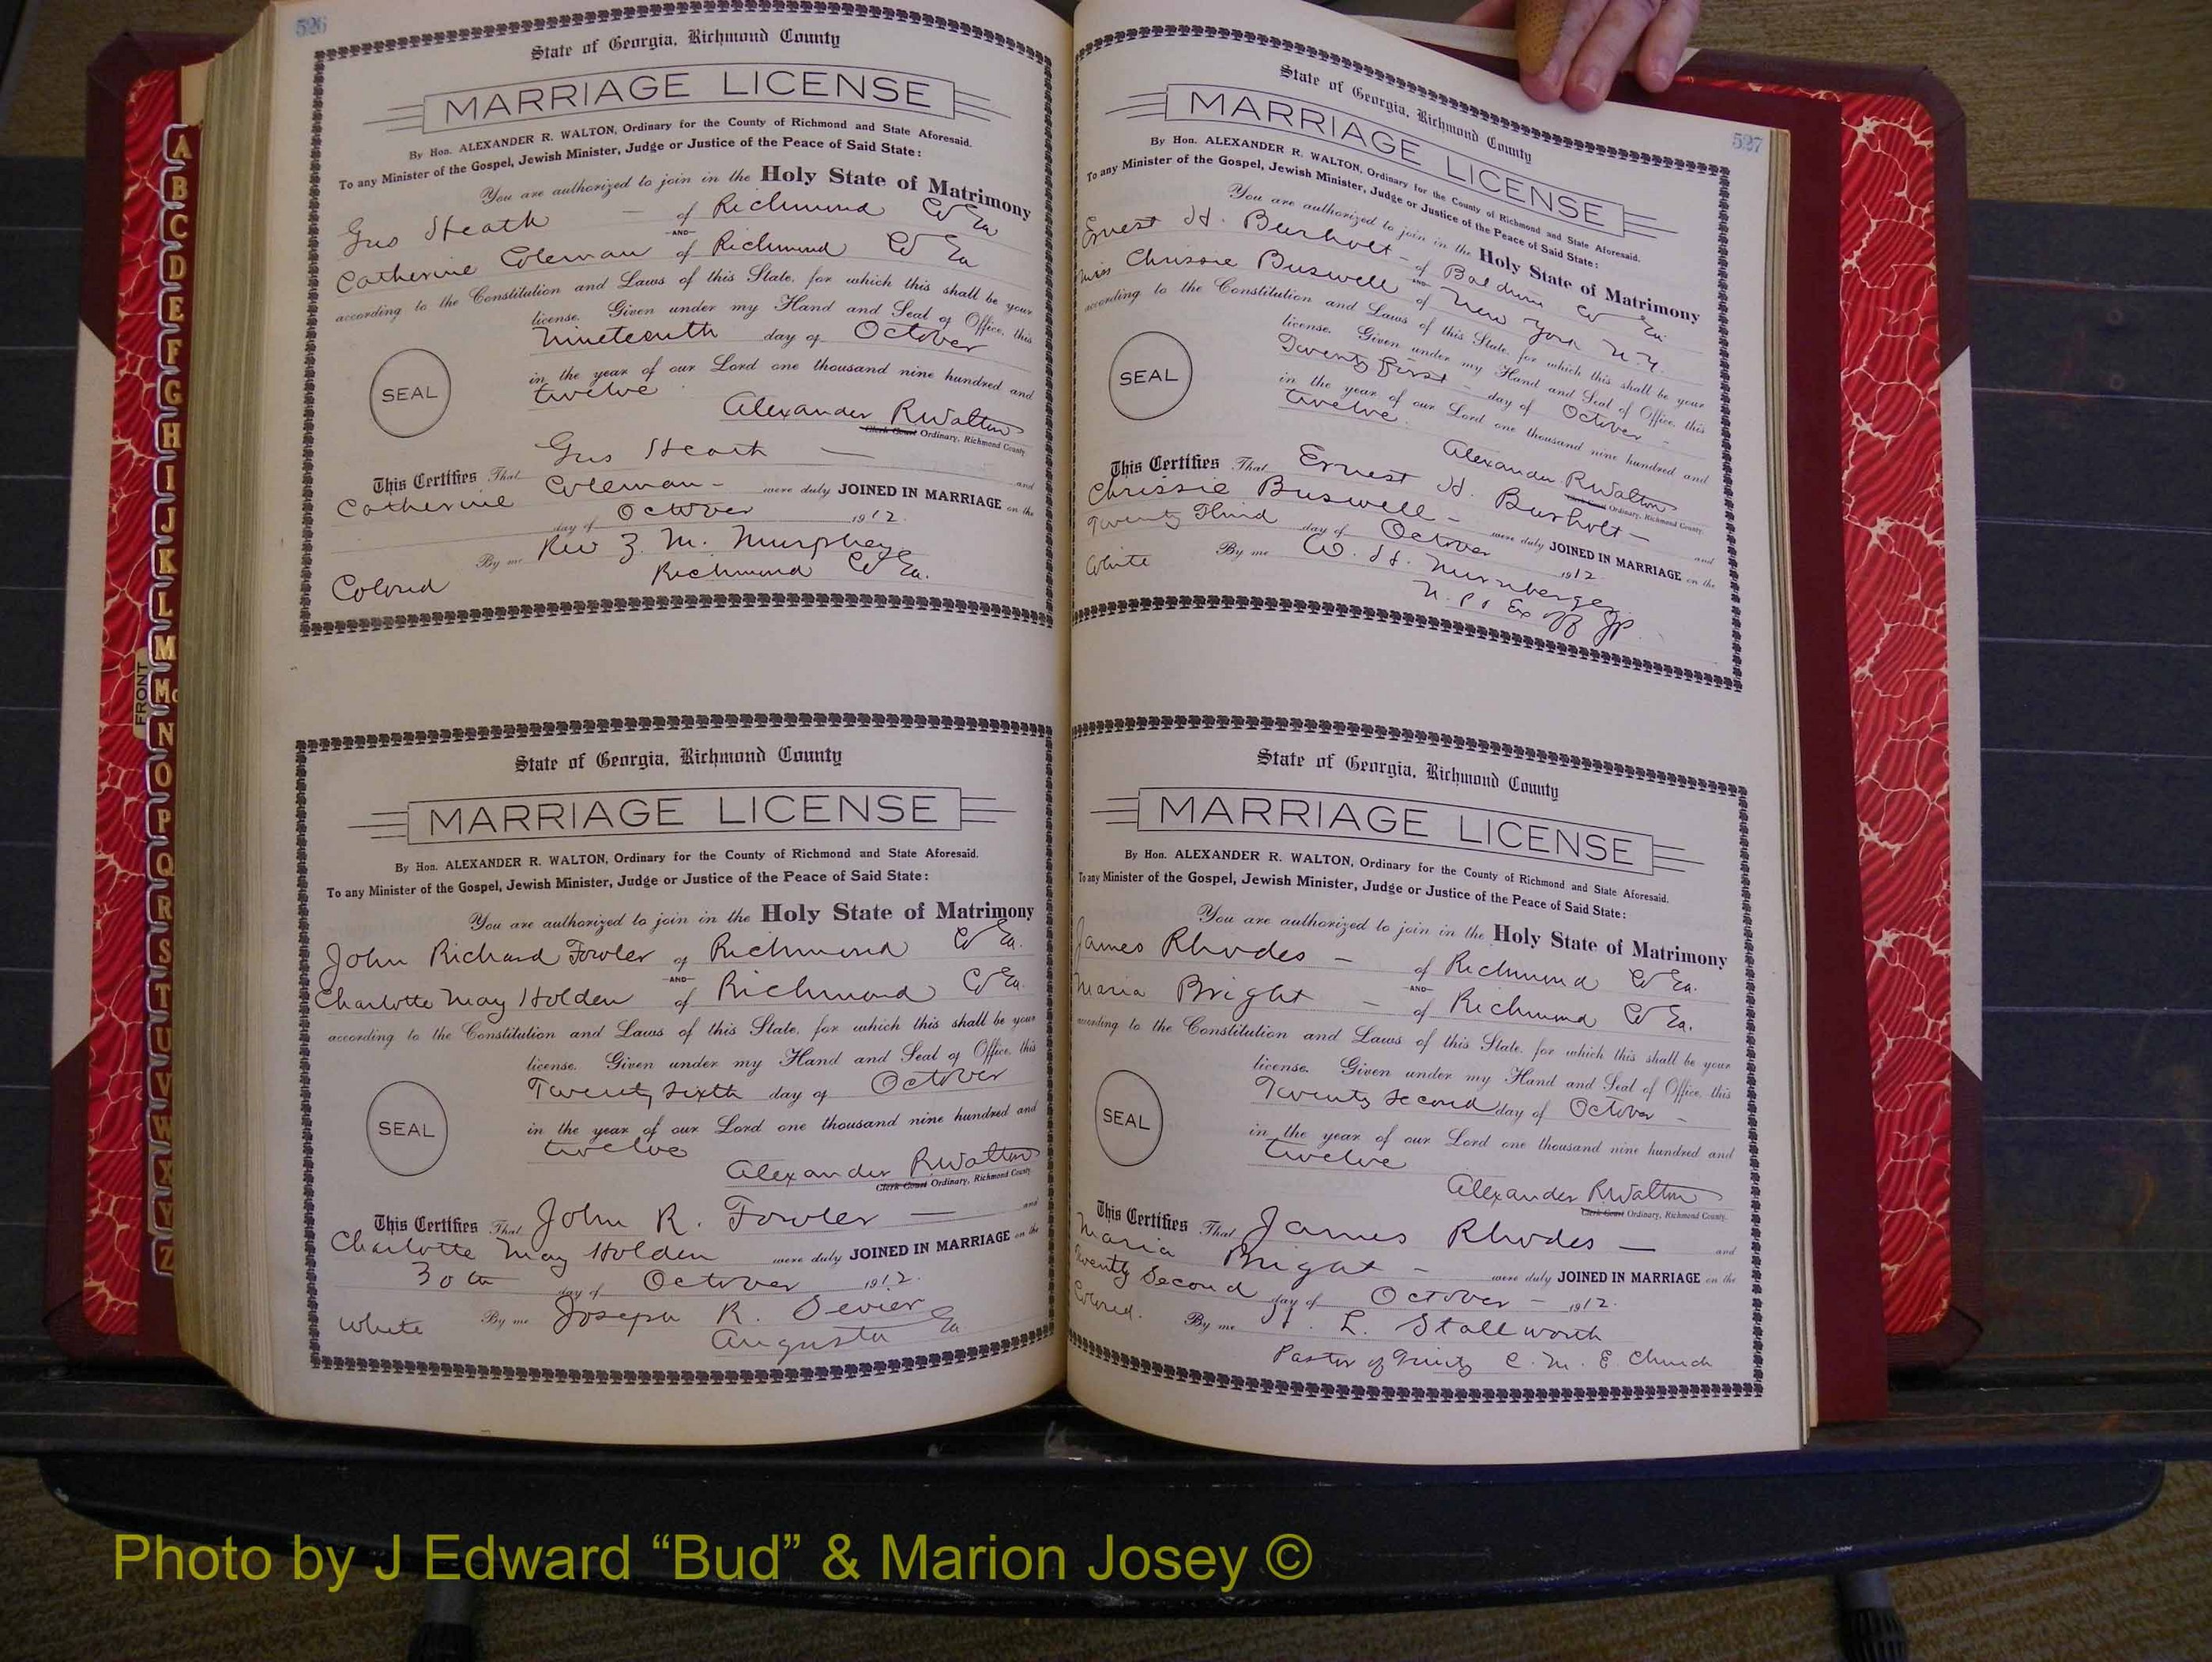 526
State of Georgia, Richmond County
MARRIAGE LICENSE
By Hon. ALEXANDER R. WALTON, Ordinary for the County of Richmond and State Aforesaid.
To any Minister of the Gospel, Jewish Minister, Judge or Justice of the Peace of Said State:
You are authorized to join in the Holy State of Matrimony
Gus Heath — of Richmond Co Ga
AND
Catherine Coleman of Richmond Co Ga
according to the Constitution and Laws of this State, for which this shall be your
license. Given under my Hand and Seal of Office, this
Nineteenth day of October
in the year of our Lord one thousand nine hundred and
SEAL
twelve
Alexander R Walton
Clerk Court Ordinary, Richmond County
This Certifies That Gus Heath — and
Catherine Coleman - were duly JOINED IN MARRIAGE on the
day of October 1912.
By me Rev Z. M. Murphey
Colored Richmond Co Ga.
State of Georgia, Richmond County
MARRIAGE LICENSE
By Hon. ALEXANDER R. WALTON, Ordinary for the County of Richmond and State Aforesaid.
To any Minister of the Gospel, Jewish Minister, Judge or Justice of the Peace of Said State:
You are authorized to join in the Holy State of Matrimony
John Richard Fowler of Richmond Co Ga.
AND
Charlotte May Holden of Richmond Co Ga.
according to the Constitution and Laws of this State, for which this shall be your
license. Given under my Hand and Seal of Office, this
Twenty sixth day of October
SEAL
in the year of our Lord one thousand nine hundred and
twelve
Alexander R. Walton
Clerk Court Ordinary, Richmond County
This Certifies That John R. Fowler — and
Charlotte May Holden were duly JOINED IN MARRIAGE on the
30th day of October 1912.
White By me Joseph R. Sevier
Augusta Ga
527
State of Georgia, Richmond County
MARRIAGE LICENSE
By Hon. ALEXANDER R. WALTON, Ordinary for the County of Richmond and State Aforesaid.
To any Minister of the Gospel, Jewish Minister, Judge or Justice of the Peace of Said State:
You are authorized to join in the Holy State of Matrimony
Ernest H. Burholt - of Baldwin Co Ga
AND
Miss Chrissie Buswell of New York N.Y.
according to the Constitution and Laws of this State, for which this shall be your
license. Given under my Hand and Seal of Office, this
Twenty first - day of October -
SEAL
in the year of our Lord one thousand nine hundred and
twelve.
Alexander R Walton
Clerk Court Ordinary, Richmond County
This Certifies That Ernest H. Burholt — and
Chrissie Buswell - were duly JOINED IN MARRIAGE on the
Twenty Third day of October 1912
White By me W. H. Nurnberger
N. P. & Ex off JP.
State of Georgia, Richmond County
MARRIAGE LICENSE
By Hon. ALEXANDER R. WALTON, Ordinary for the County of Richmond and State Aforesaid.
To any Minister of the Gospel, Jewish Minister, Judge or Justice of the Peace of Said State:
You are authorized to join in the Holy State of Matrimony
James Rhodes - of Richmond Co Ga.
AND
Maria Bright - of Richmond Co Ga.
according to the Constitution and Laws of this State, for which this shall be your
license. Given under my Hand and Seal of Office, this
Twenty second day of October -
SEAL
in the year of our Lord one thousand nine hundred and
twelve
Alexander R. Walton
Clerk Court Ordinary, Richmond County.
This Certifies That James Rhodes — and
Maria Bright - were duly JOINED IN MARRIAGE on the
Twenty Second day of October - 1912.
Colored. By me H. L. Stallworth
Pastor of Trinity C. M. E. Church
A
B
C
D
E
F
G
H
I
J
K
L
M
Mc
N
O
P
Q
R
S
T
U
V
W
X
Y
Z
FRONT
Photo by J Edward “Bud” & Marion Josey ©